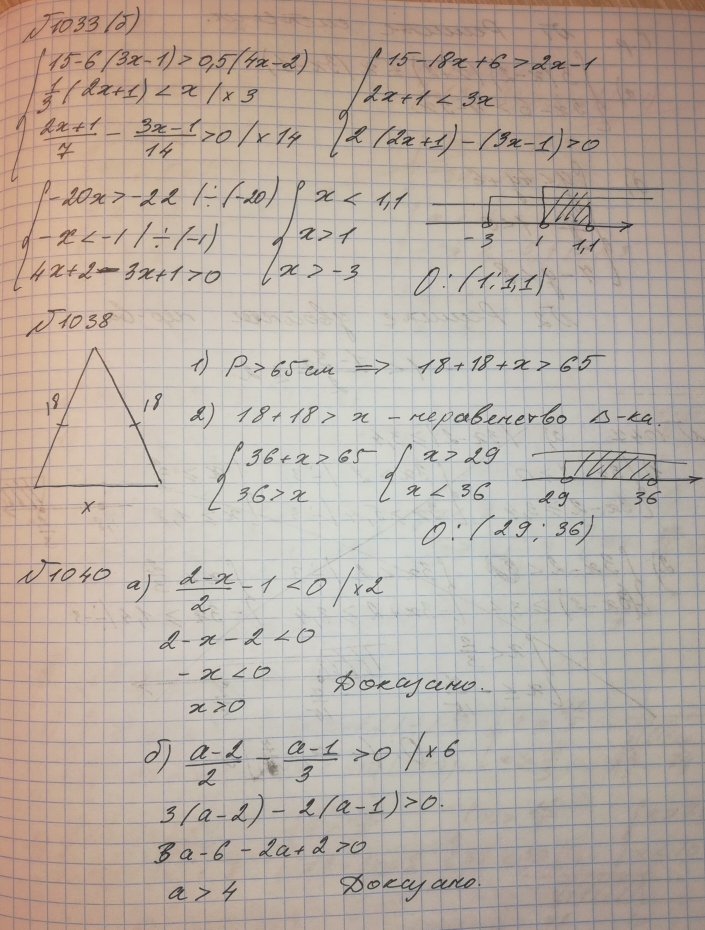 №1033(б)
15-6(3x-1)>0,5(4x-2)
1/3(2x+1)<x /×3
(2x+1)/7 - (3x-1)/14 >0 /×14
15-18x+6>2x-1
2x+1<3x
2(2x+1)-(3x-1)>0
-20x>-22 /÷(-20)
-x<-1 /÷(-1)
4x+2-3x+1>0
x<1,1
x>1
x>-3
-3 1 1,1
О: (1;1,1)
№1038
18 18
x
1) P>65см => 18+18+x>65
2) 18+18>x - неравенство Δ-ка.
36+x>65
36>x
x>29
x<36
29 36
О: (29;36)
№1040 а) (2-x)/2 -1<0 /×2
2-x-2<0
-x<0
x>0 Доказано.
б) (a-2)/2 - (a-1)/3 >0 /×6
3(a-2)-2(a-1)>0.
3a-6-2a+2>0
a>4 Доказано.